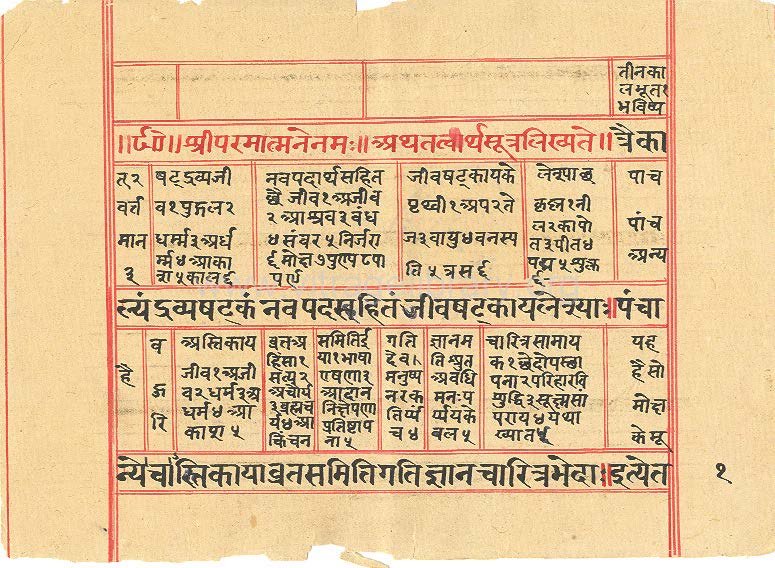 तीनका
लभूत१
भविष्य
॥र्द०॥श्रीपरमात्मनेनमः॥अथतत्वार्थसूत्रलिख्यते॥त्रैका
त२ षट्द्रव्यजी नवपदार्थसहित जीवषट्कायके पाच
वर्त्त व१पुद्गल२ छै जीव१अजीव पृथ्वी१अप२ते पांच
२आश्रव३बंध
मान धर्म्म३अधर् ४संवर५निर्जरा ज३वायु४वनस्प त३पीत४ अन्य
३ र्म्म४आका र्६मोक्ष७पुण्य८पा ति५त्रसर्६ पद्म५शुक्ल
श५कालर्६ पर्९ र्६
ल्यंद्रव्यषट्कंनवपदसहितंजीवषट्कायलेश्याःपंचा
व अस्तिकाय व्रतअ समितिई गति ज्ञानम चारित्रसामाय यह
है जीव१अजी हिंसा१ या१भाषा देव१ तिश्रुत क१छेदोपस्छा हैसो
सत्य२ एषणा३ मनुष्य अवधि पना२परिहारवि
ऊ व२धर्म३अ अचौर्य आदान नरक मनःप शुद्धि३सूक्ष्मसा मोक्ष
धर्म४आ ३ब्रह्मच निक्षेपणा तिर्य्य र्य्ययके पराय४यथा
रि काश५ र्य४अ प्रतिष्टाप च४ वल५ ख्यात५ केमू
किंचन ना५
न्येचास्तिकायाव्रतसमितिगतिज्ञानचारित्रभेदाःइत्येत १